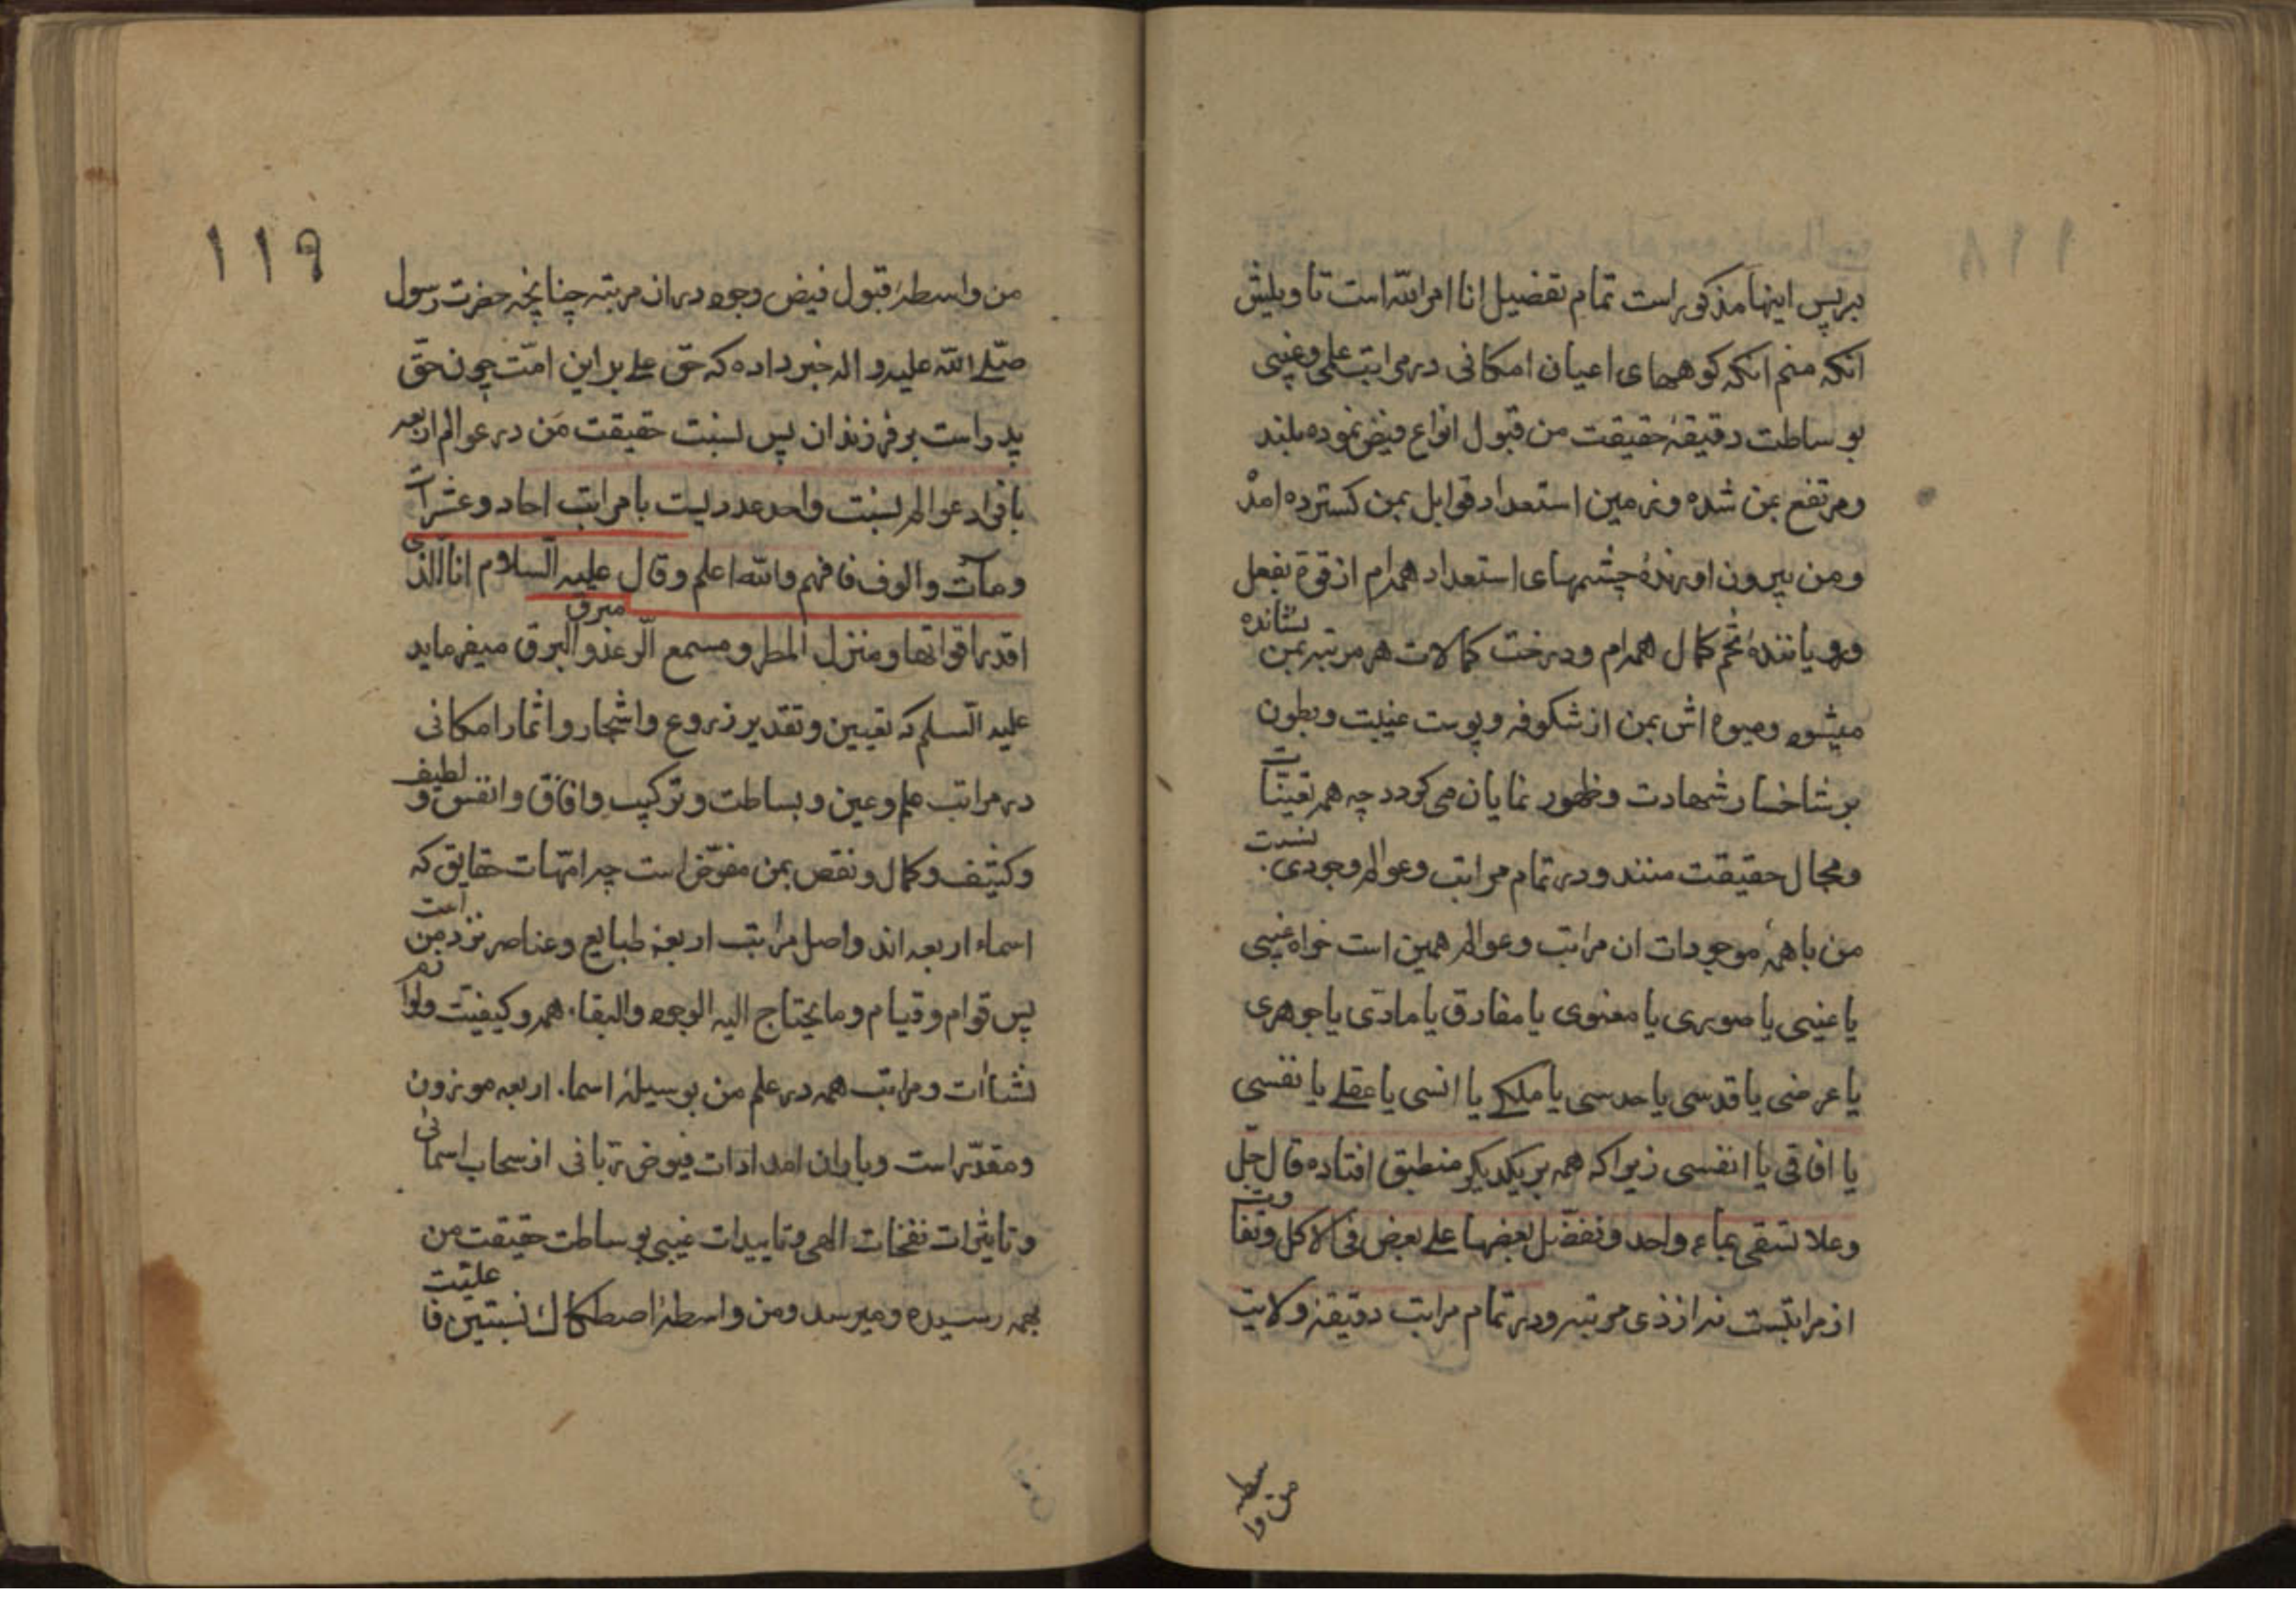 برپس اینها مذکور است تمام تفضیل انا امر الله است تاویلش
انکه منم انکه کوههای اعیان امکانی در مراتب علمی وغیبی
بوساطت دقیقهٔ حقیقت من قبول انواع فیض نموده بلند
ومرتفع بمن شده وزمین استعداد قوابل بمن کسترده امد
ومن بیرون اورندهٔ چشمهای استعداد همه‌ام از قوة بفعل
ورویانندهٔ تخم کمال همه‌ام ودرخت کمالات هر مرتبه بمن نشانده
میشود ومیوه اش بمن از شکوفه وپوست غیبت وبطون
بر شاخسار شهادت وظهور نمایان می کردد چه همه تعینات
ومجال حقیقت منند ودر تمام مراتب وعوالم وجودی نسبت
من باهمهٔ موجودات ان مراتب وعوالم همین است خواه غیبی
یا عینی یا صوری یا معنوی یا مفارق یا مادی یا جوهری
یا عرضی یا قدسی یا حدسی یا ملکی یا انسی یا عقلی یا نفسی
یا افاقی یا انفسی زیرا که همه بر یکدیکر منطبق افتاده قال جلّ
وعلا تسقی بماء واحد ونفضّل بعضها علی بعض فی الاکل وتفاوت
از مراتبست نه از ذی مرتبه ودر تمام مراتب دقیقهٔ ولایت
من واسطه
۱۱۹
من واسطهٔ قبول فیض وجود دران مرتبه چنانچه حضرت رسول
صلّی الله علیه واله خبر داده که حق علی بر این امّت چون حقّ
پدر است بر فرزندان پس نسبت حقیقت من در عوالم اربعه
بافراد عوالم نسبت واحد عددیست با مراتب احاد وعشرات
ومآت والوف فافهم والله اعلم وقال علیه السلام انا الذی
اقدر اقواتها ومنزل المطر ومسمع الرعد والبرق میفرماید
مبرق
علیه السلم که تعیین وتقدیر زروع واشجار واثمار امکانی
در مراتب علم وعین وبساطت وترکیب وافاق وانفس ولطیف
وکثیف وکمال ونقص بمن مفوّض است چه امّهات حقایق که
اسماء اربعه اند واصل مراتب اربعهٔ طبایع وعناصر نزد من است
پس قوام وقیام وما یحتاج الیه الوجود والبقاء همه وکیفیّت ولوازم
نشاات ومراتب همه در علم من بوسیلهٔ اسماء اربعه موزون
ومقدّر است وباران امدادات فیوض ربّانی از سحاب اسمائی
وتاثیرات نفخات الهی وتاییدات غیبی بوساطت حقیقت من
بهمه رسیده ومیرسد ومن واسطهٔ اصطکاک نسبتین فاعلیّت